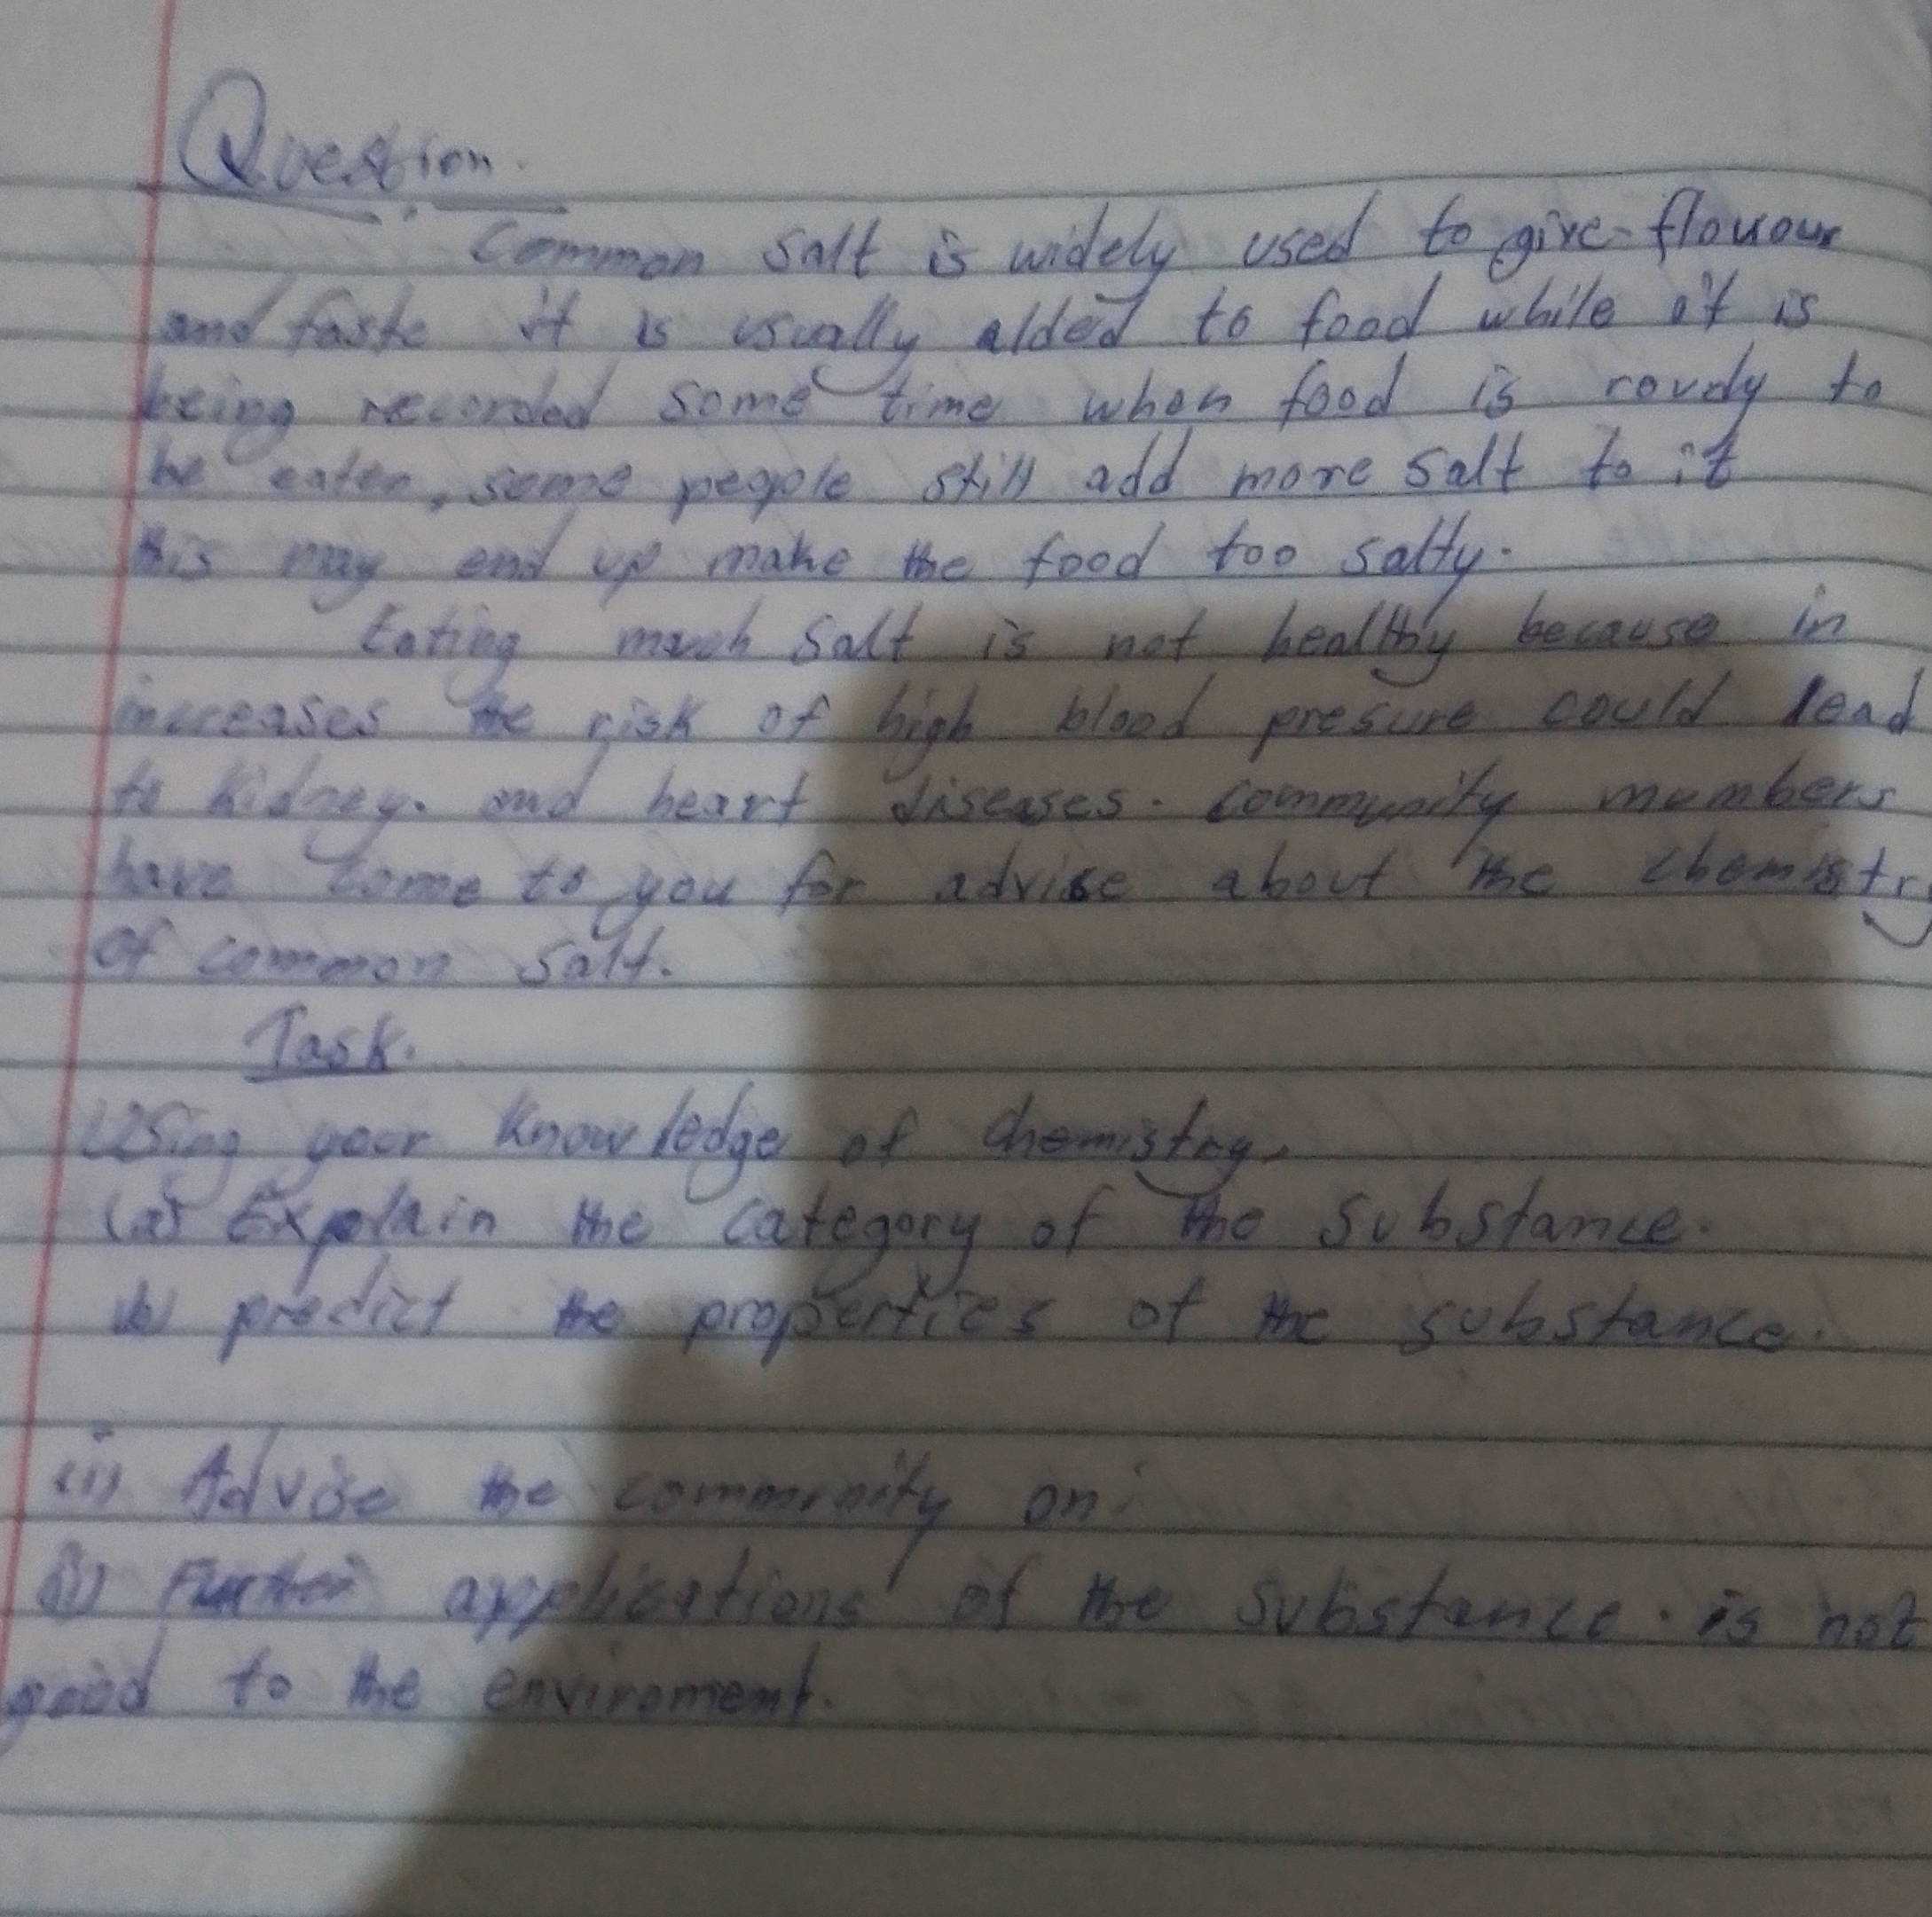 Question.
Common salt is widely used to give flovour
and taste it is usually alded to food while it is
being recorded some time when food is roudy to
be eaten, some people still add more salt to it
this may end up make the food too salty.
Eating much salt is not healthy because in
increases the risk of high blood presure could lead
to kidney. and heart diseases. community members
have come to you for advise about the chemistry
of common salt.
Task.
Using your knowledge of chemistry,
(a) Explain the category of the substance.
(b) predict the properties of the substance.
(ii) Advise the community on:
(i) Further applications of the substance. is not
good to the enviroment.